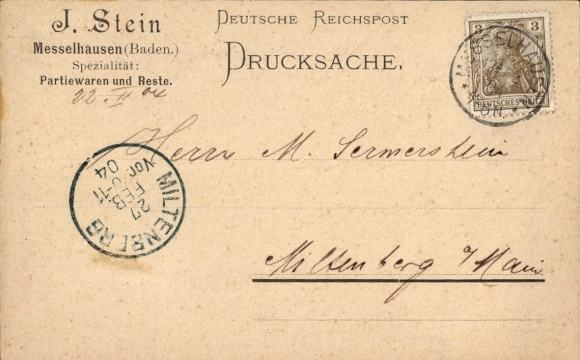 J. Stein
Messelhausen (Baden.)
Spezialität:
Partiewaren und Reste.
22. II 04
DEUTSCHE REICHSPOST
DRUCKSACHE.
3
DEUTSCHES REICH
MESSELHAUSEN
Herrn M. Sermersheim
MILTENBERG
27
FEB
04
Vor
Miltenberg a/Main